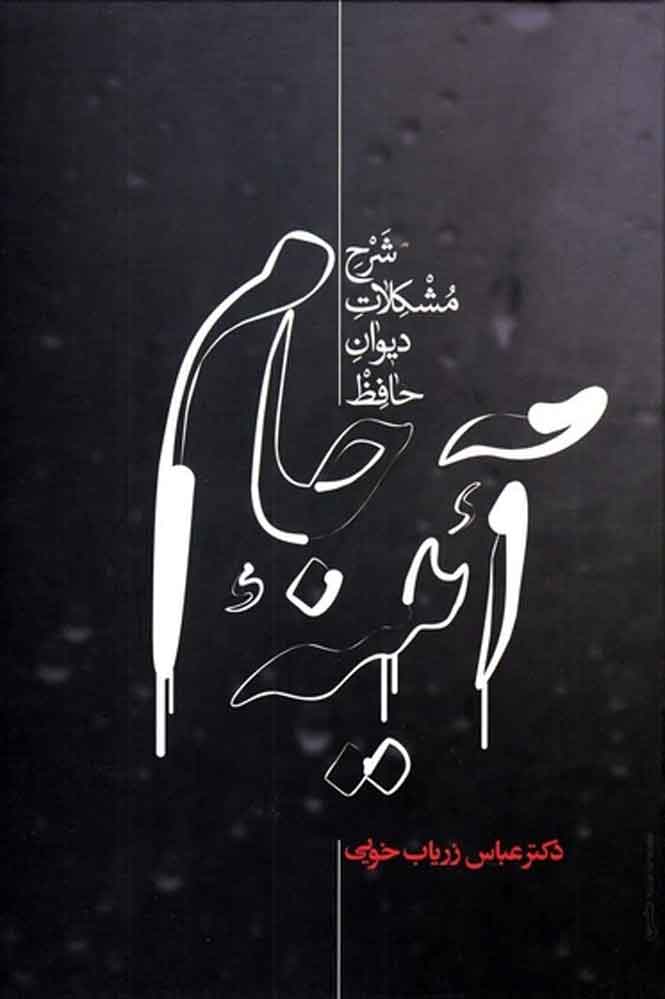 شَرْحِ
مُشْکِلاتِ
دیوانِ
حافِظْ
آئینهٔ جام
دکتر عباس زریاب خویی